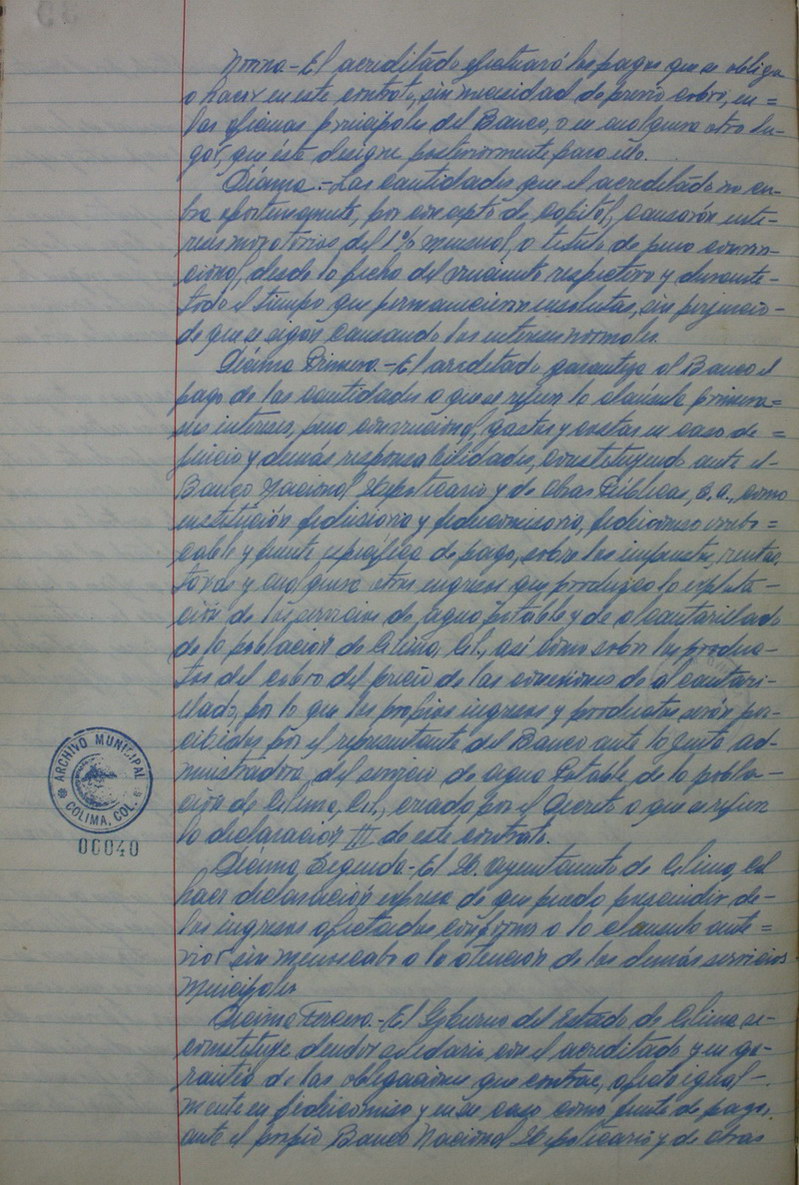 Novena.- El acreditado efectuará los pagos que se obliga
a hacer en este contrato, sin necesidad de previo cobro, en=
las oficinas principales del Banco, o en cualquiera otro lu-
gar, que éste designe posteriormente para ello.
Décima.- Las cantidades que el acreditado no cu-
bra oportunamente, por concepto de capital, causarán inte-
reses moratorios del 1% mensual, a título de pena conven-
cional, desde la fecha del vencimiento respectivo y durante-
todo el tiempo que permanecieren insolutas, sin perjuicio-
de que se sigan causando los intereses normales.
Décima Primera.- El acreditado garantiza al Banco el
pago de las cantidades a que se refiere la cláusula primera=
sus intereses, pena convencional, gastos y costas en caso de =
juicio y demás responsabilidades, constituyendo ante el-
Banco Nacional Hipotecario y de Obras Públicas, S.A., como
institución fiduciaria y fideicomisaria, fideicomiso irrevo=
cable y fuente específica de pago, sobre los impuestos, rentas,
tarifas y cualquiera otros ingresos que produzca la explota-
ción de los servicios de agua potable y de alcantarillado
de la población de Colima, Col., así como sobre los produc-
tos del cobro del precio de las conexiones de alcantari-
llado, por lo que los propios ingresos y productos serán per-
cibidos por el representante del Banco ante la Junta ad-
ministradora del servicio de agua Potable de la pobla-
ción de Colima, Col., creado por el Decreto a que se refiere
la declaración III de este contrato.
Décima Segunda.- El H. Ayuntamiento de Colima, Col
hace declaración expresa de que puede prescindir de-
los ingresos afectados conforme a la cláusula ante=
rior sin menoscabo a la atención de los demás servicios
Municipales
Décima Tercera.- El Gobierno del Estado de Colima, se-
constituye deudor solidario con el acreditado y en ga-
rantía de las obligaciones que contrae, afecta igual-
mente en fideicomiso y en su caso como fuente de pago,
ante el propio Banco Nacional Hipotecario y de Obras
ARCHIVO MUNICIPAL
COLIMA, COL.
00040